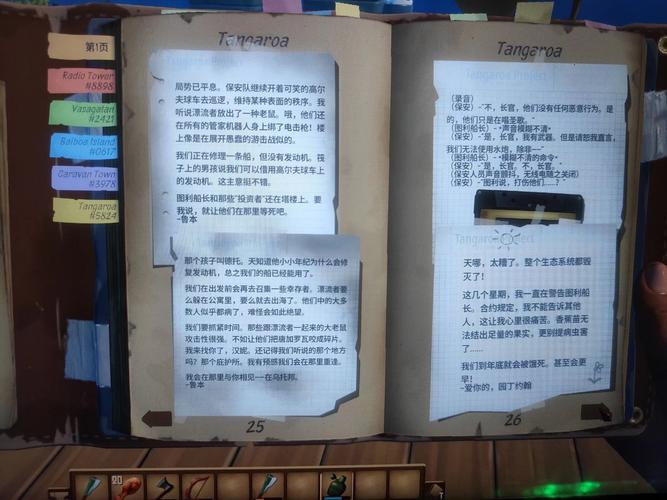 第1页
Radio Tower
#8898
Vasagatan
#2421
Balboa Island
#0617
Caravan Town
#3978
Tangaroa
#5824
Tangaroa
Tangaroa Project
局势已平息。保安队继续开着可笑的高尔
夫球车去巡逻，维持某种表面的秩序。我
听说漂流者放出了一种老鼠。哦，他们还
在所有的管家机器人身上绑了电击枪！楼
上像是在展开愚蠢的游击战似的。
我们正在修理一条船，但没有发动机。筏
子上的男孩说我们可以借用高尔夫球车上
的发动机。这主意挺不错。
图利船长和那些“投资者”还在塔楼上。要
我说，就让他们在那里等死吧。
-鲁本
那个孩子叫德托。天知道他小小年纪为什么会修
复发动机，总之我们的船已经能用了。
我们在出发前会再去召集一些幸存者。漂流者要
么躲在公寓里，要么就去出海了。他们中的大多
数人似乎都病了，难怪会如此绝望。
我们要抓紧时间。那些跟漂流者一起来的大老鼠
攻击性很强。不如让他们把唐加罗瓦咬成碎片。
我来找你了，汉妮。还记得我们听说的那个地方
吗？那个庇护所。我有预感我们会在那里重逢。
我会在那里与你相见——在乌托邦。
-鲁本
25
Tangaroa
Tangaroa Project
（录音）
（保安）-“不，长官，他们没有任何恶意行为。是
的，他们只是在唱圣歌。”
（图利船长）-*声音模糊不清*
（保安）-“是，长官，我有武器。但是请恕我直言，
我们无法使用水炮，除非——”
（图利船长）-*模糊不清的命令*
（保安）-“是，长官。不，长官。”
（保安人员声音颤抖，无线电随之关闭）
（保安）-“图利说，打伤他们……？”
Tangaroa Project
天哪，太糟了。整个生态系统都毁
灭了！
这几个星期，我一直在警告图利船
长。合约规定，我不能告诉其他
人，这让我心里很痛苦。香蕉苗无
法结出足量的果实，更别提病虫害
了……
我们到年底就会被饿死，甚至会更
早！
-爱你的，园丁约翰
26
20